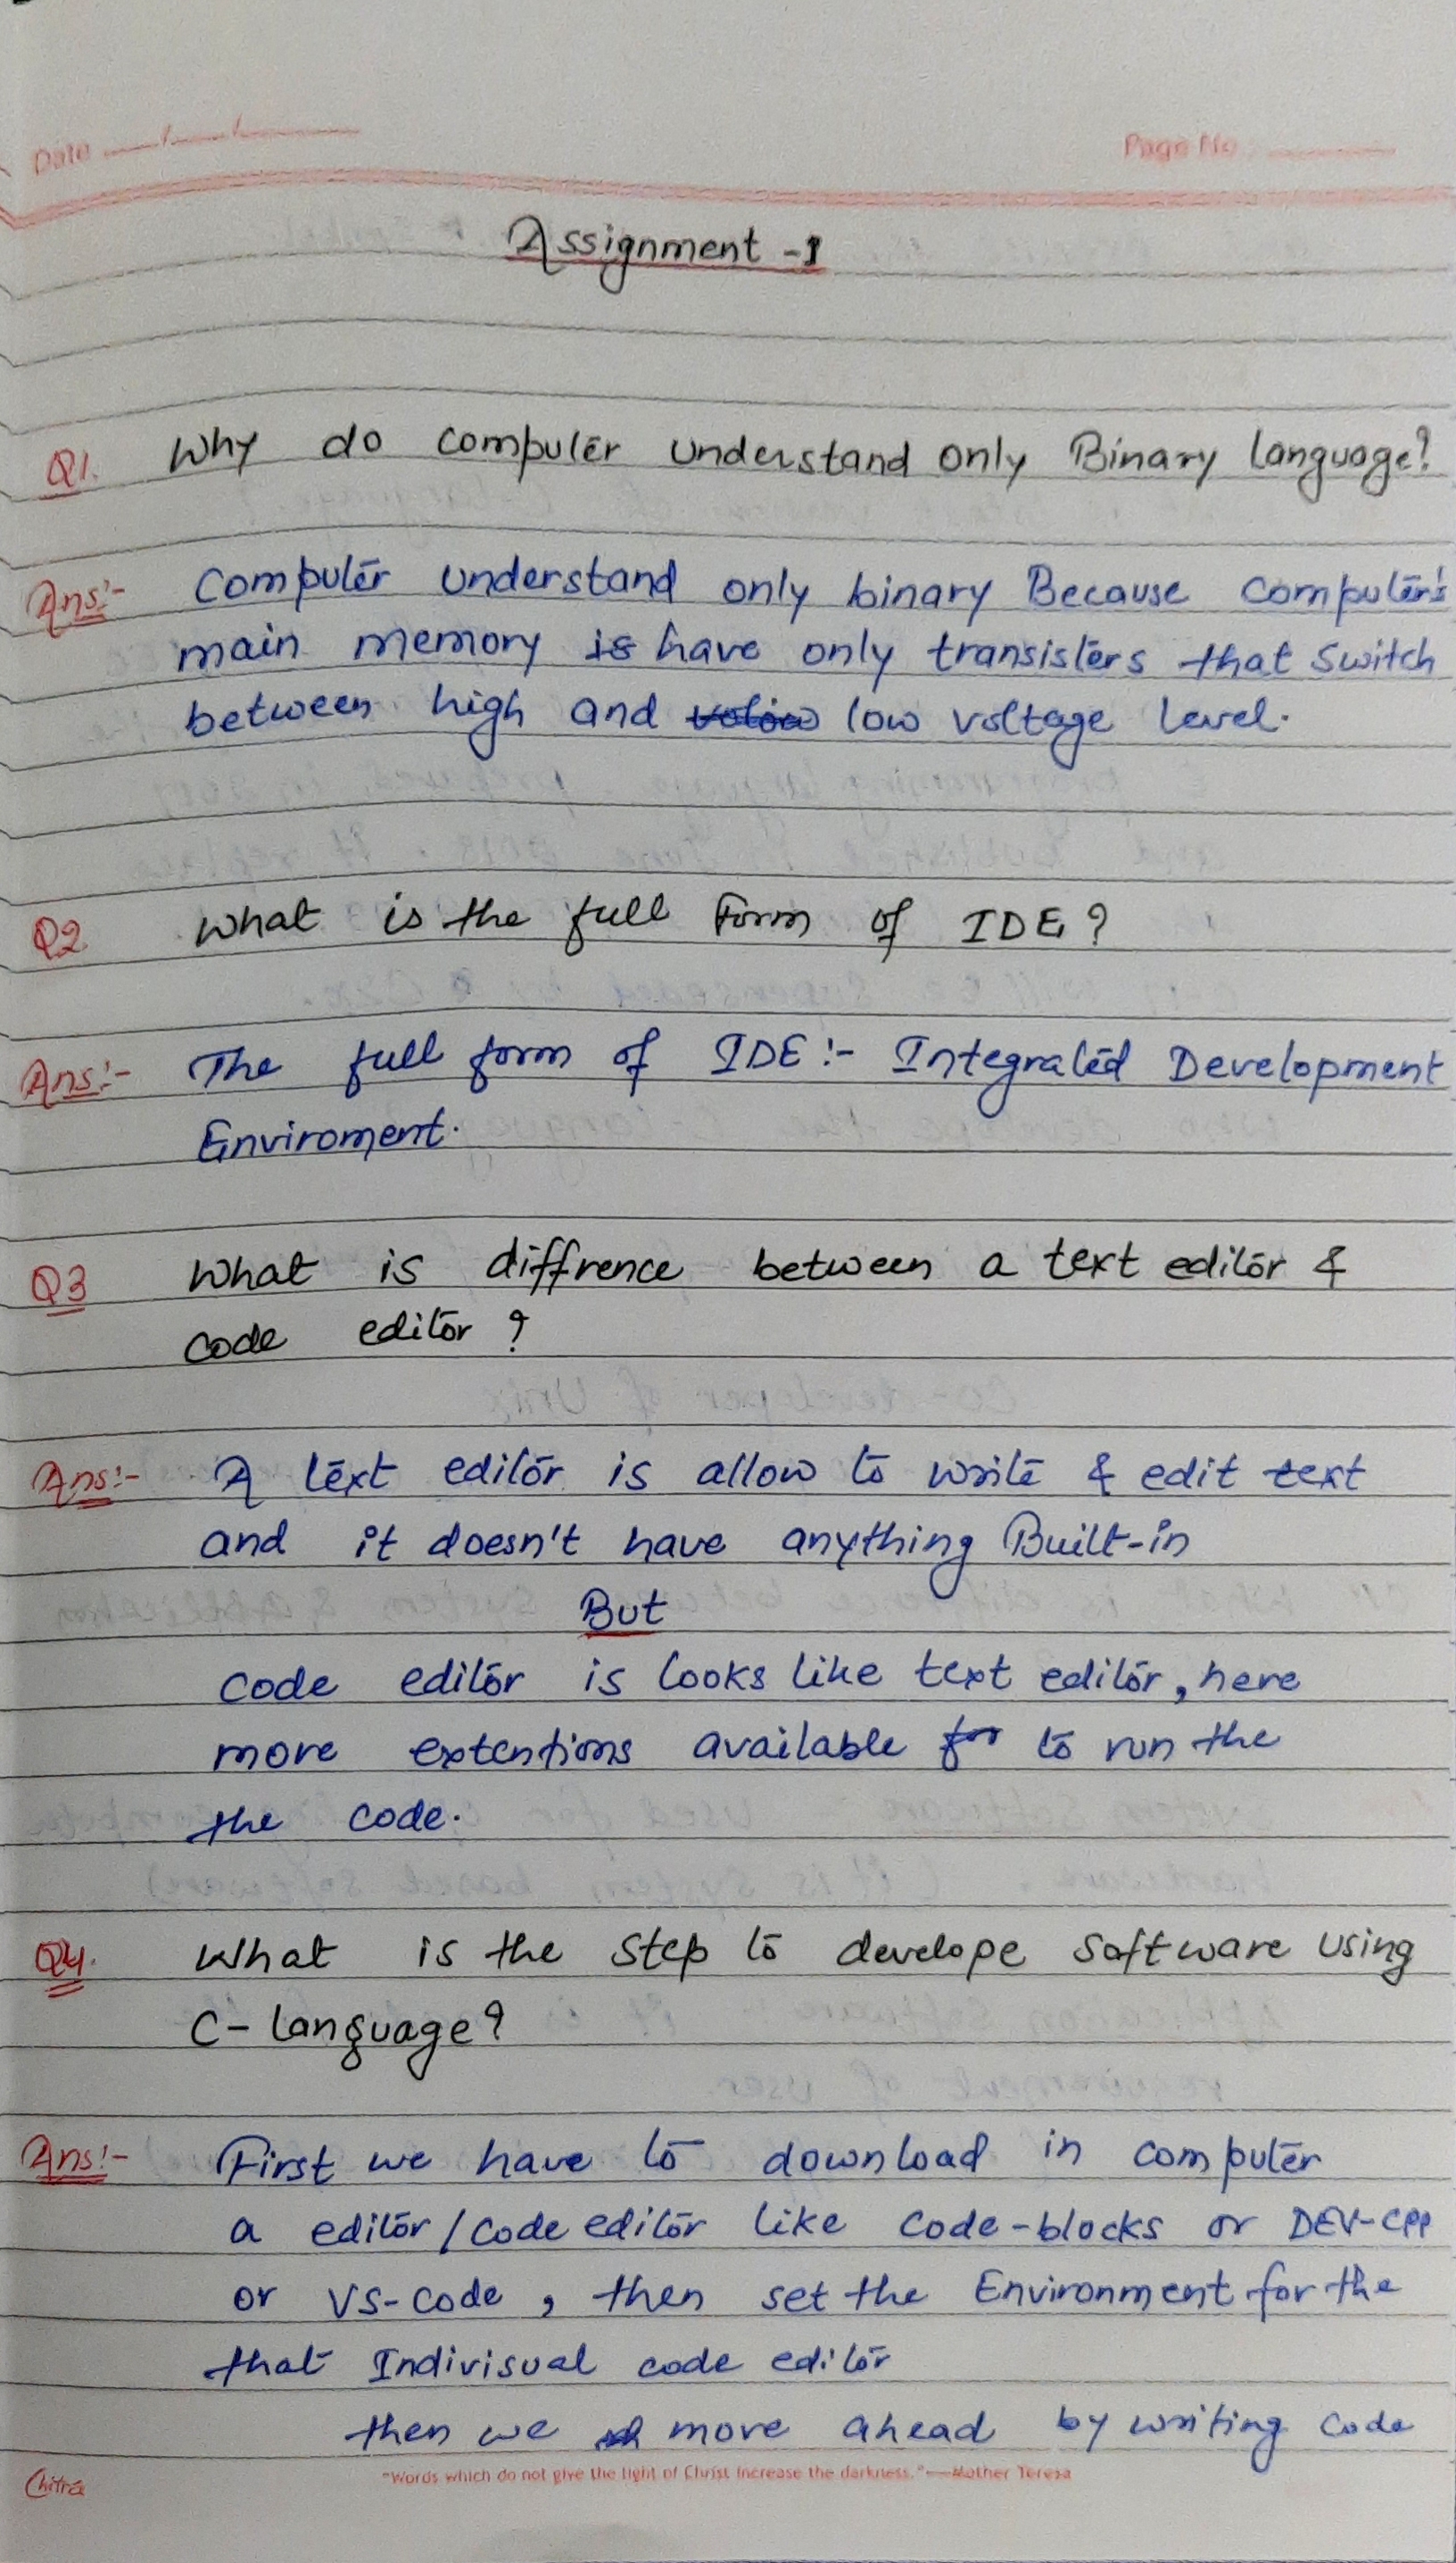 Date
Page No.
Assignment -1
Q1. Why do computer understand only Binary language?
Ans:- Computer understand only binary Because computer's
main memory is have only transisters that switch
between high and low voltage level.
Q2 What is the full form of IDE?
Ans:- The full form of IDE:- Integrated Development
Enviroment.
Q3 What is diffrence between a text editor &
code editor ?
Ans:- A text editor is allow to write & edit text
and it doesn't have anything Built-in
But
code editor is looks like text editor, here
more extentions available for to run the
the code.
Q4. What is the step to develope software using
C-language?
Ans:- First we have to download in computer
a editor/code editor like code-blocks or DEV-CPP
or VS-code , then set the Environment for the
that Indivisual code editor
then we move ahead by writing code
Chitra "Words which do not give the light of Christ increase the darkness."—Mother Teresa